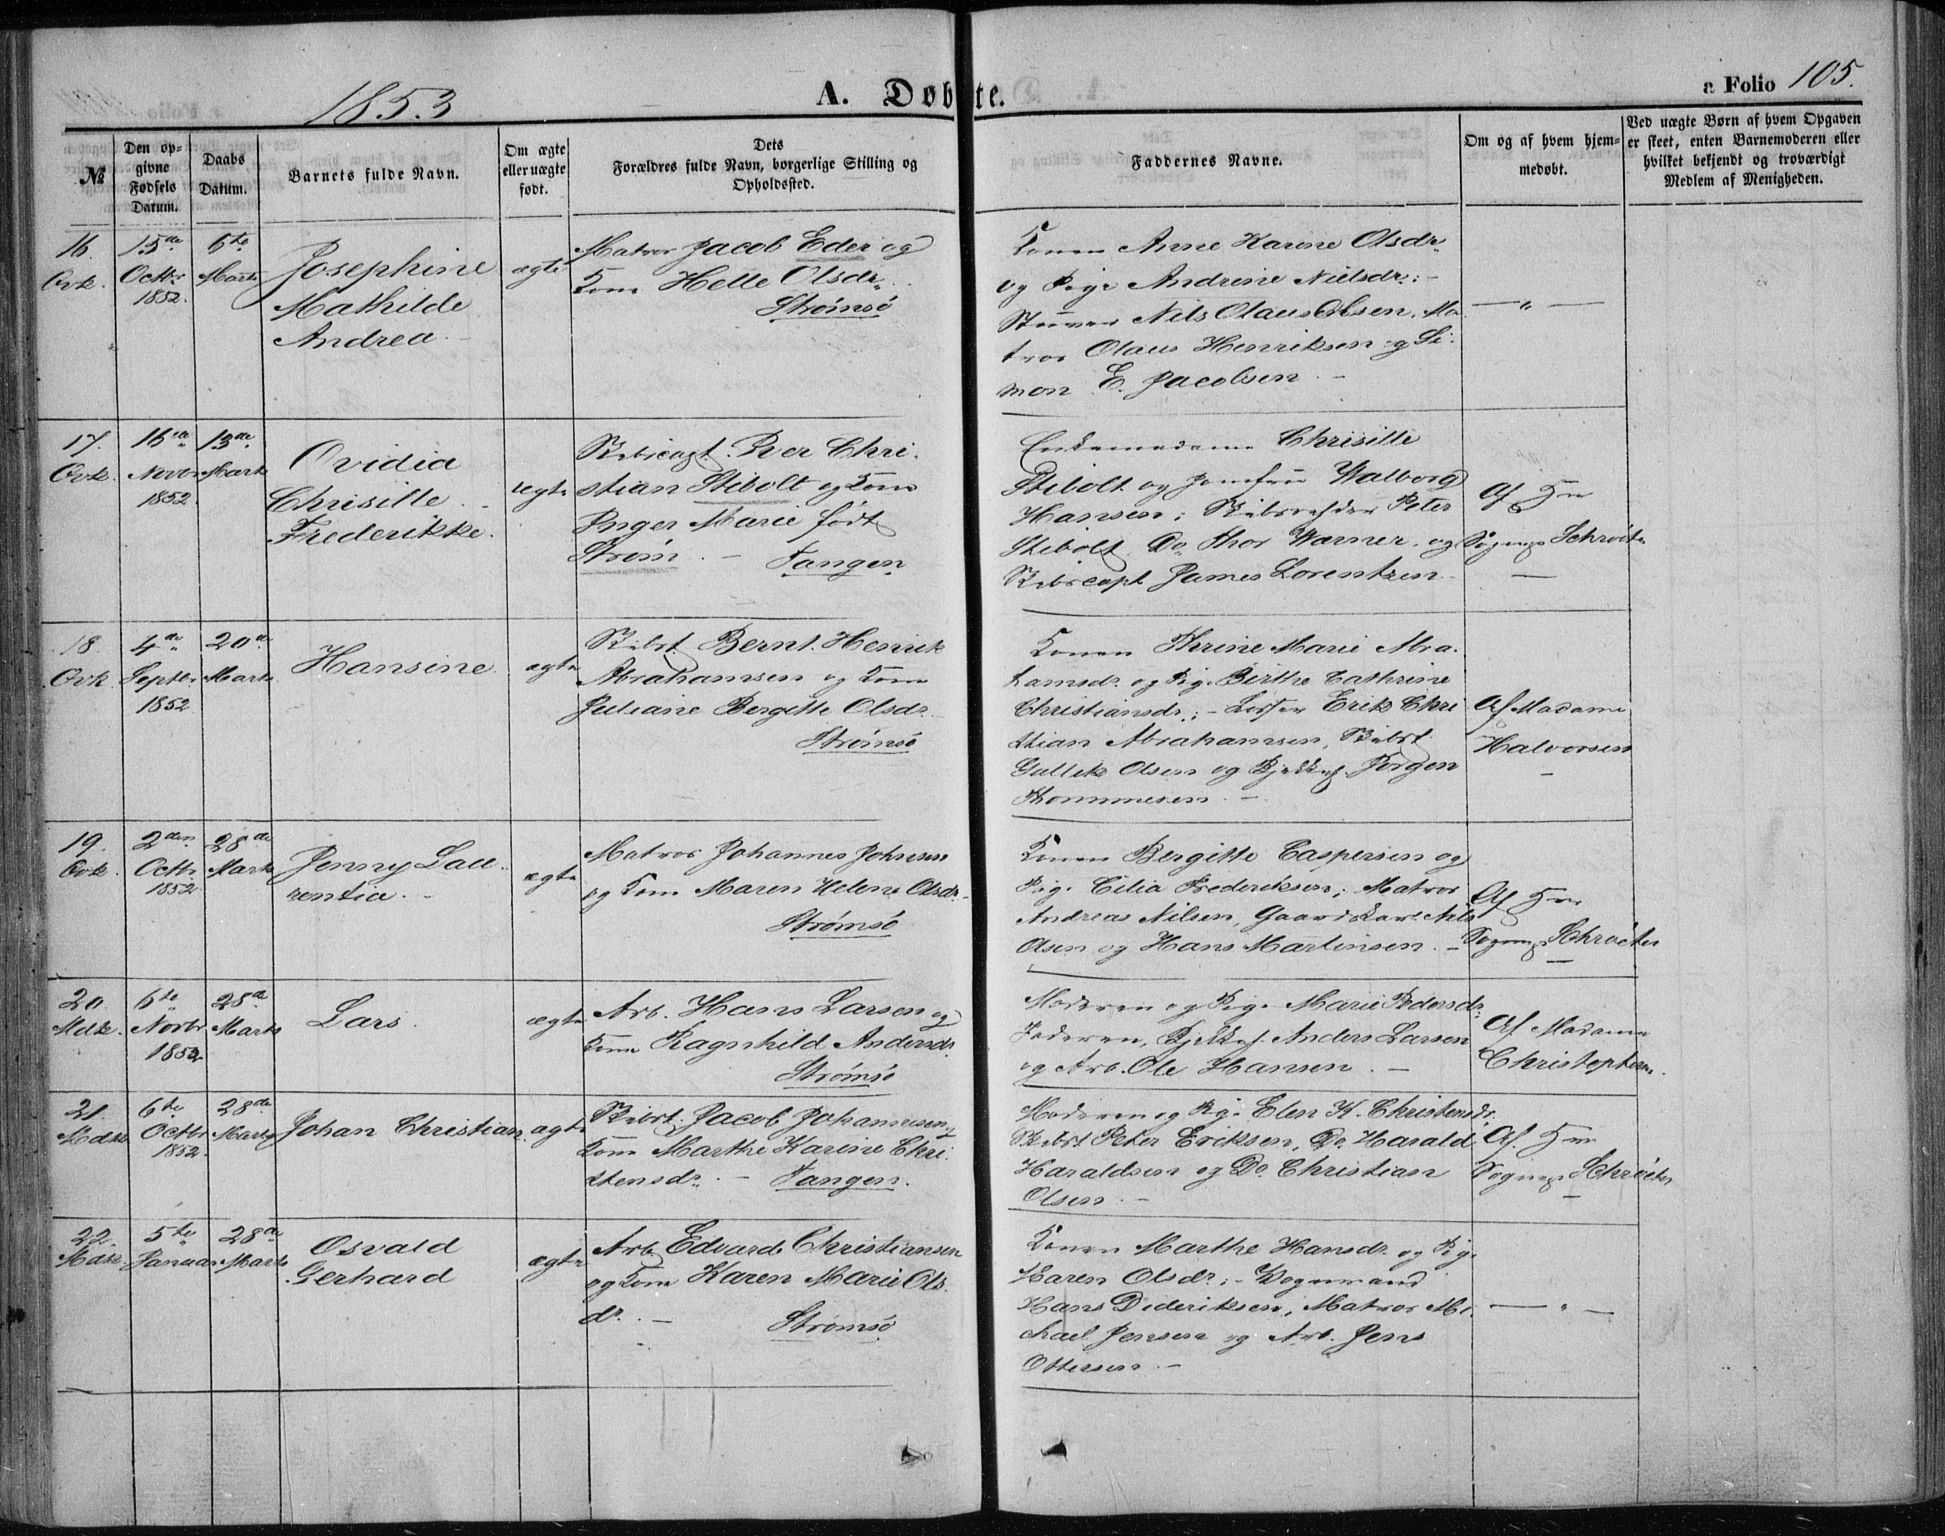 1853
A. Døbte.
a Folio 105.
№
Den op-
givne
Fødsels
Datum.
Daabs
Datum.
Barnets fulde Navn.
Om ægte
eller uægte
født.
Dets
Forældres fulde Navn, borgerlige Stilling og
Opholdssted.
Faddernes Navne.
Om og af hvem hjem-
medøbt.
Ved uægte Børn af hvem Opgaven
er skeet, enten Barnemoderen eller
hvilket bekjendt og troværdigt
Medlem af Menigheden.
16.
Qvk.
15de
Octbr
1852.
6te
Marts
Josephine
Mathilde
Andrea
ægte
Matros Jacob Eder og
Kone Helle Olsdr.
Strømsø
Konen Anne Karine Olsdr.
og Pige Andrine Nielsdr: -
Stuver Nils Olaus Olsen, Ma-
tros Olaus Henriksen og Si-
mon E. Jacobsen -
— " —
17.
Qvk.
16de
Novbr
1852.
13de
Marts
Ovidia
Chrisille
Frederikke.
ægte
Skibscapt. Peer Chri-
stian Stibolt og Kone
Inger Marie født
Strøm. - Tangen
Enkemadame Chrisille
Stibolt og Jomfru Walborg
Hansen; Skibsrheder Peter
Stibolt, Do Thor Warner, og
Skibscapt James Lorentzen.
Af Hr
Sognepr Schrøter
—
18.
Qvk.
4de
Septbr
1852
20de
Marts
Hansine
ægte
Skibst. Bernt Henrik
Abrahamsen og Kone
Juliane Bergitte Olsdr.
Strømsø
Konen Thrine Marie Abra-
hamsdr. og Pige Birthe Cathrine
Christiansdr.; - Erik Chri
stian Abrahamsen, Skibst.
Gullik Olsen og Jørgen
Thommesen. -
Af Madame
Halvorsen
—
19.
Qvk.
2den
Octbr
1852
28de
Marts
Jenny Lau-
rentia. -
ægte
Matros Johannes Johnsen
og Kone Maren Helene Olsdr. -
Strømsø
Konen Bergitte Caspersen og
Pige Cilia Frederiksen; Matros
Andreas Nilsen, Gaardskarl Nils
Olsen og Hans Martinsen. -
Af Hr
Sognepr Schrøter
—
20.
Mdk.
6te
Novbr
1852.
28de
Marts
Lars.
ægte
Arb. Hans Larsen og
Kone Ragnhild Andersdr.
Strømsø
Moderen og Pige Marie Pedersdr:
Faderen, Anders Larsen
og Arb. Ole Hansen. -
Af Madame
Christophersen.
21.
Mdk.
6te
Octbr
1852.
28de
Marts
Johan Christian.
ægte
Skibst. Jacob Johannesen og
Kone Marthe Karine Chri-
stensdr. - Tangen.
Moderen og Pige Elen K. Christensdr.
Skibst Peter Eriksen, Do. Harald
Haraldsen og Do Christian
Olsen. -
Af Hr
Sognepr Schrøter
—
22.
Mdk.
5te
Januar
28de
Marts
Osvald
Gerhard
ægte
Arb. Edvard Christiansen
og Kone Karen Marie Ols-
dr. - Strømsø
Konen Marthe Hansdr og Pige
Karen Olsdr; - Vognmand
Hans Dideriksen, Matros Mi-
chael Jensen og Arb. Jens
Ottersen -
— " —